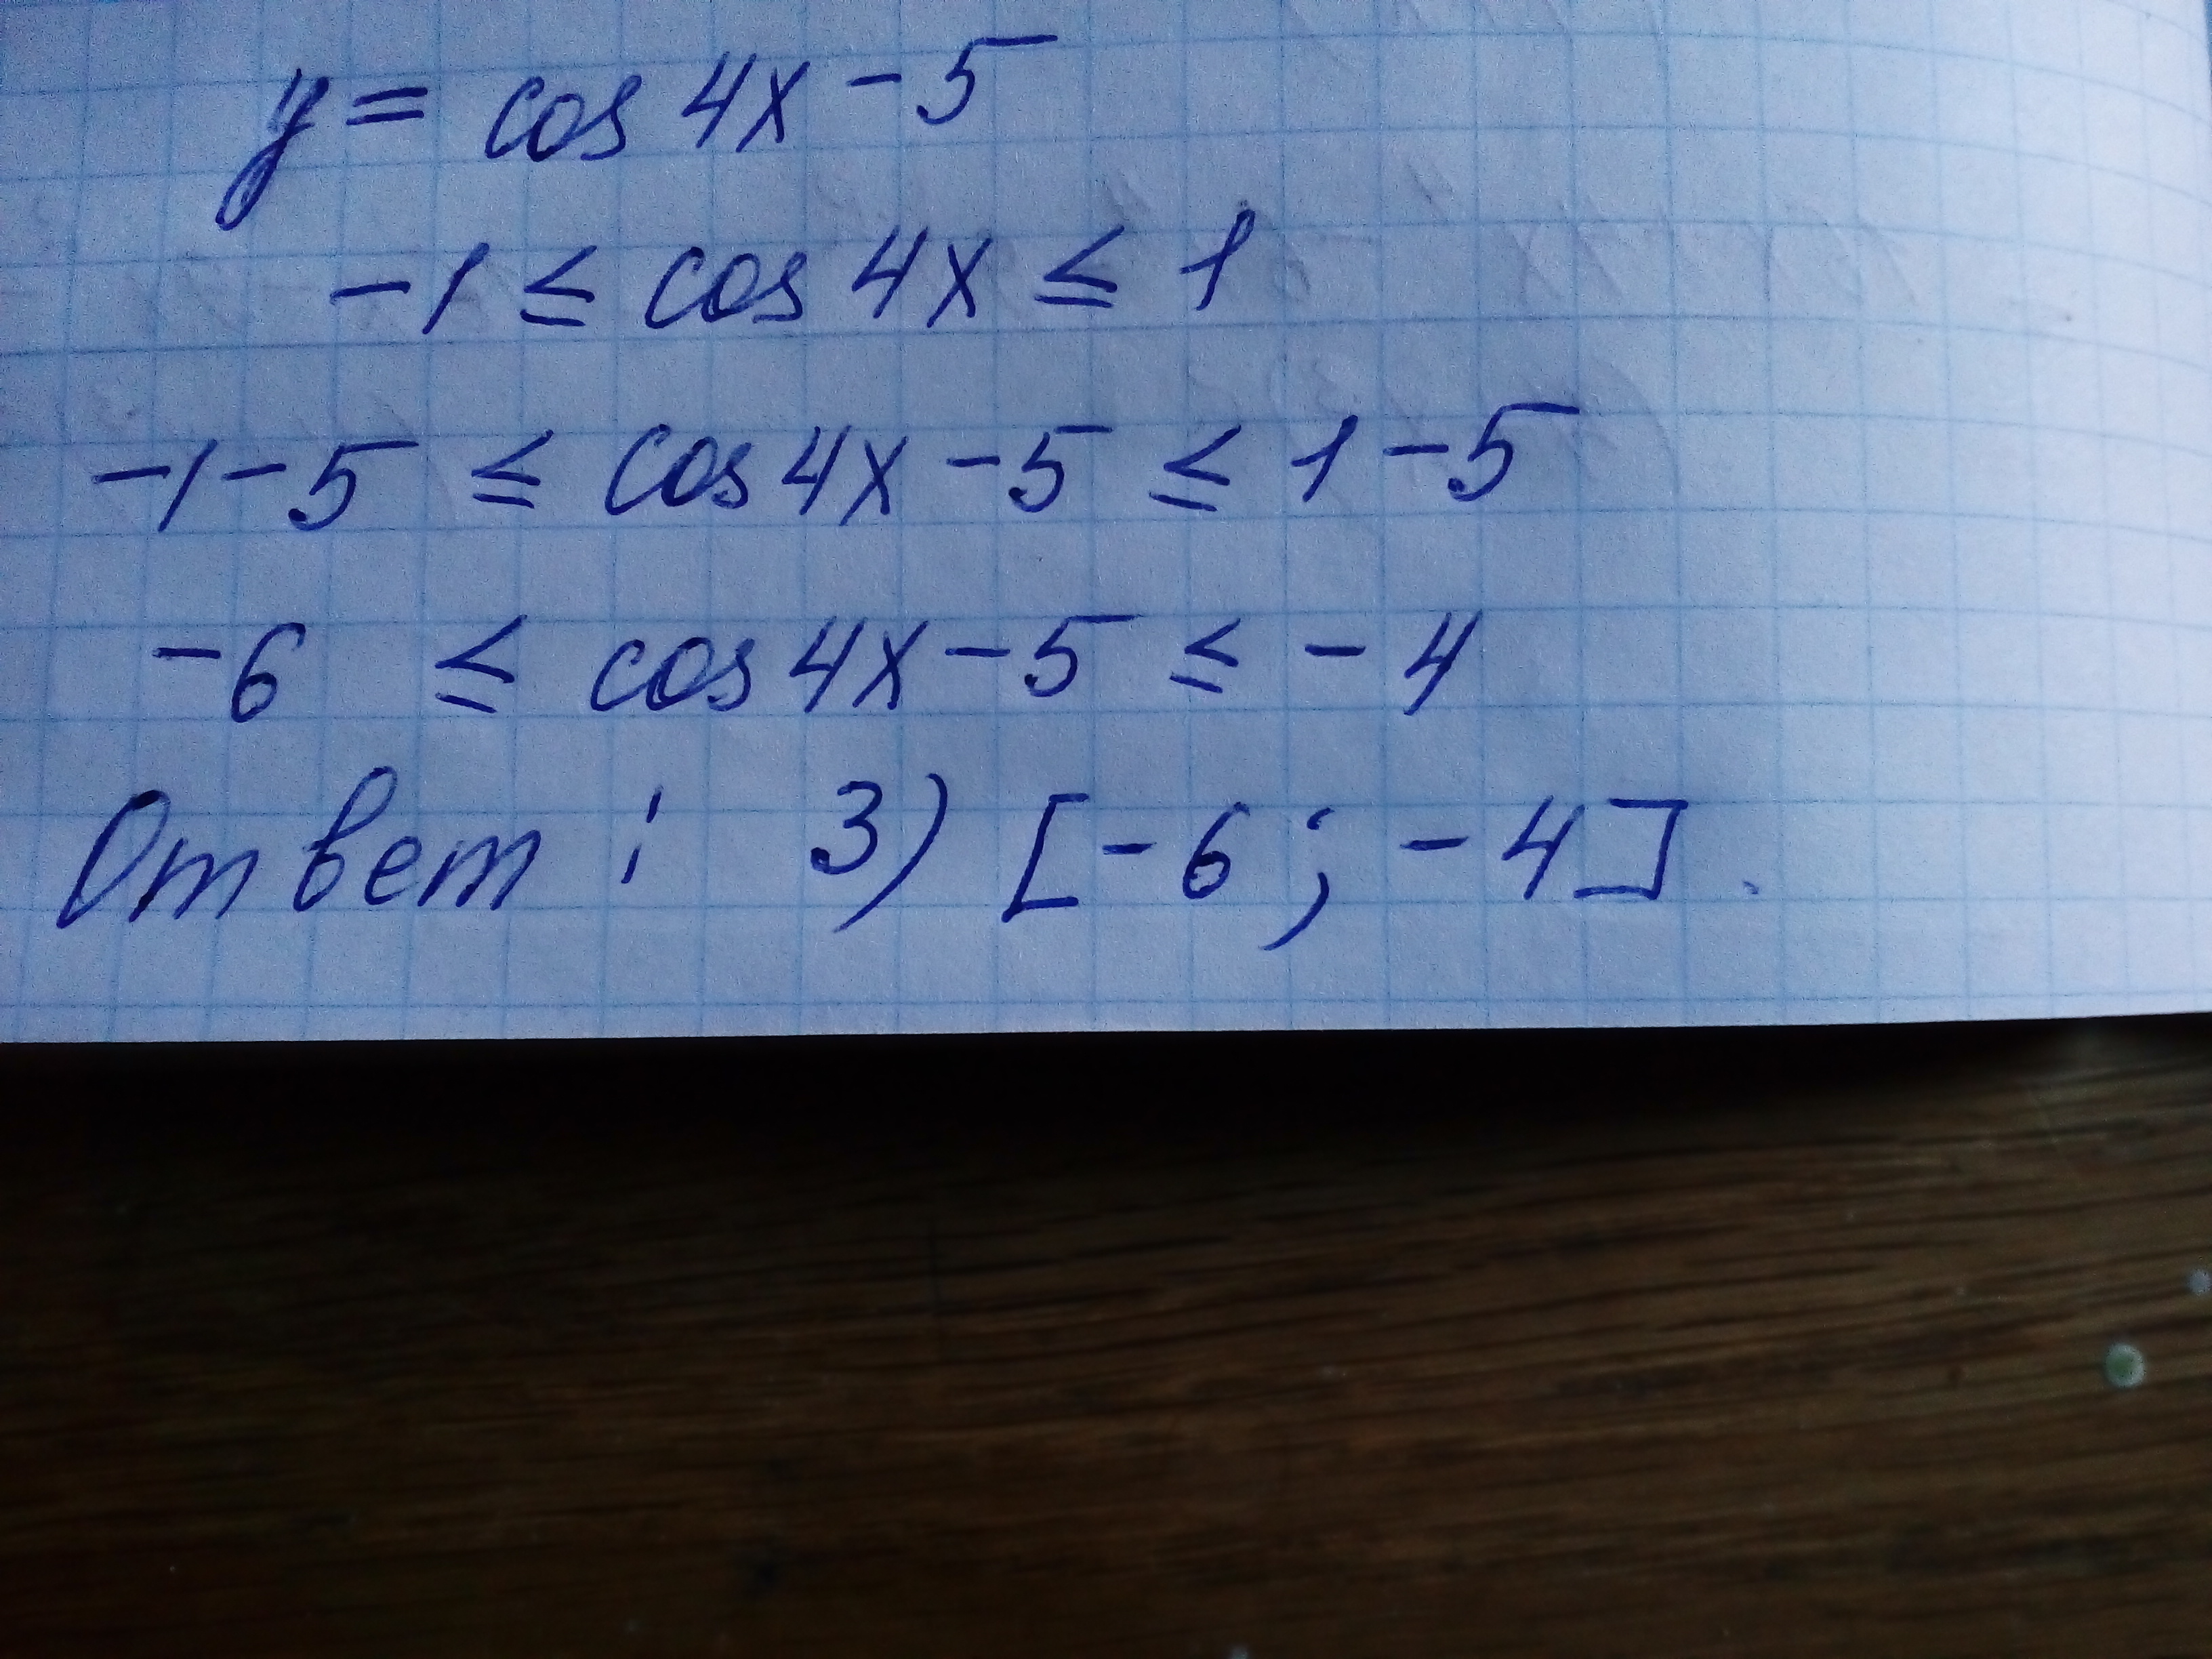 y = cos 4x - 5
-1 ≤ cos 4x ≤ 1
-1-5 ≤ cos 4x - 5 ≤ 1 - 5
-6 ≤ cos 4x - 5 ≤ - 4
Ответ: 3) [-6; -4].